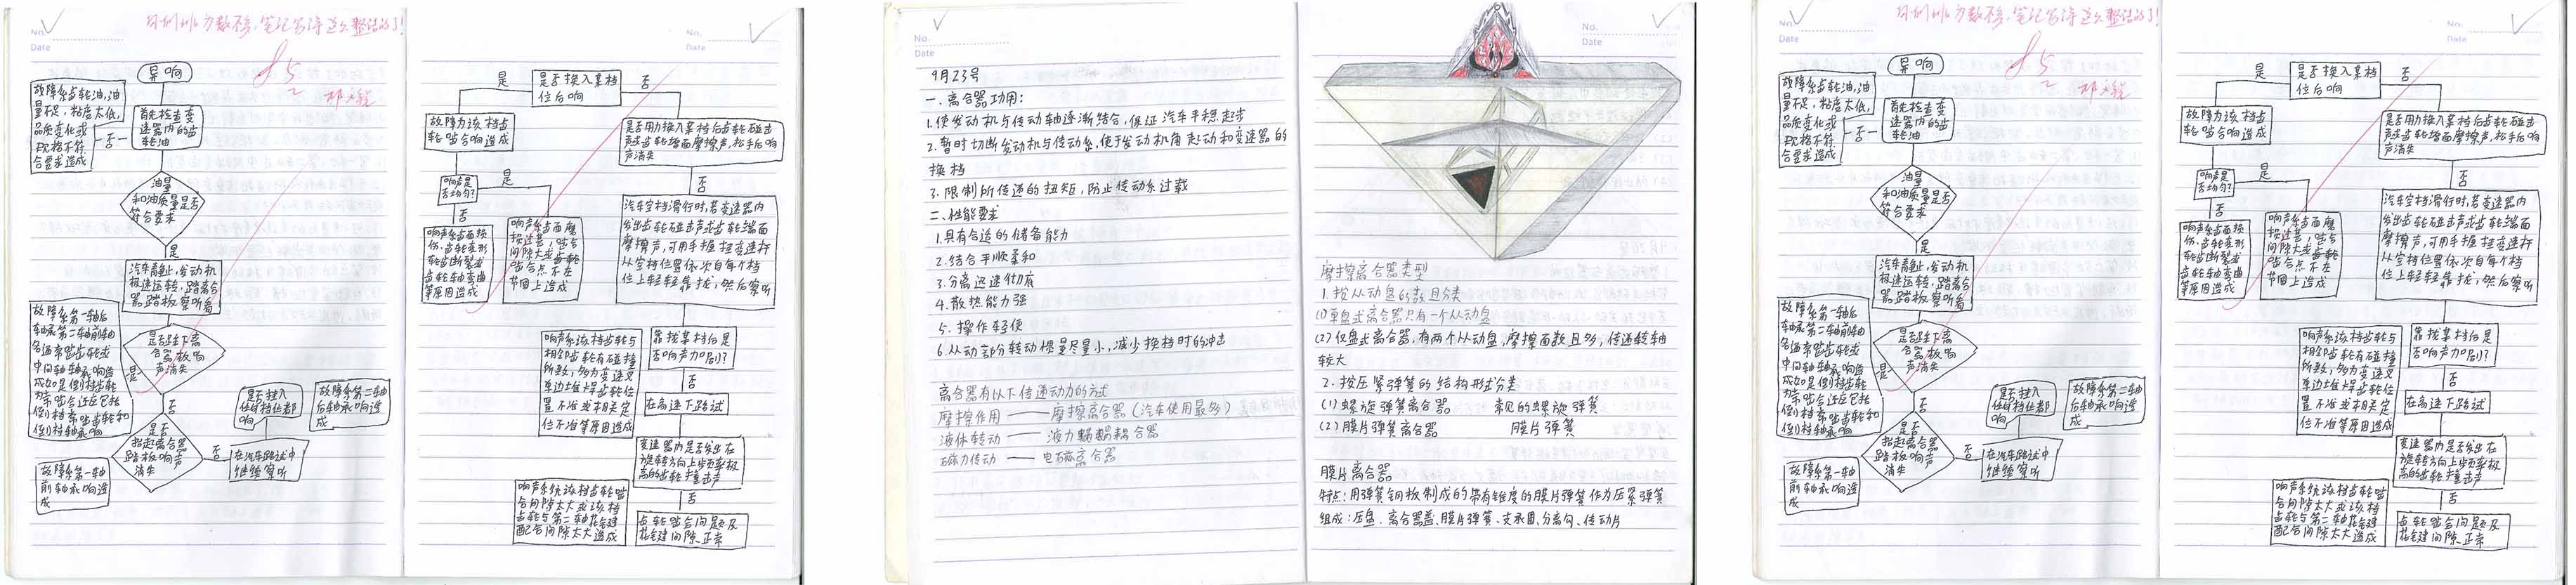 No.
Date
85
异响
故障系齿轮油,油
量不足,粘度太低,
品质变化或
规格不符
合要求造成
否
首先检查变
速器内的齿
轮油
油量
和油质量是否
符合要求
是
汽车静止,发动机
极速运转,踏离合
器踏板察听看
是否踩下离
合器板响
声消失
是
故障系第一轴后
轴承第二轴前轴
中间轴轴承响造
倒档常啮齿轮和
倒档轴承响
否
是否
抬起离合器
踏板响声
消失
故障系第一轴
前轴承响造
成
否
在汽车路试中
继续察听
是否挂入
任何档位都
响
故障系第二轴
后轴承响造
成
No.
Date
是否换入某档
位后响
是
否
故障为该档齿
轮啮合响造成
响声是
否均匀?
是
否
响声系齿面损
伤,齿轮变形
轮齿断裂或
齿轮轴弯曲
等原因造成
响声系齿面磨
损过甚,啮合
间隙太或齿轮
啮合点不在
节圆上造成
是否用力换入某档后齿轮碰击
声或齿轮端面摩擦声,松手后响
声消失
否
汽车空档滑行时,若变速器内
发出齿轮碰击声或齿轮端面
摩擦声,可用手握住变速杆
从空档位置依次自每个档
位上轻轻靠拢,然后察听
靠拢某档后是
否响声加剧?
响声系该档齿轮与
相邻齿轮有碰撞
所致,多为变速叉
单边堆焊齿轮位
置不准或相关定
位不准等原因造成
否
在高速下路试
变速器内是否发出在
旋转方向上频率极
高的齿轮撞击声
否
响声系统该档齿轮啮
合间隙太大或该档
齿轮与第二轴花键
配合间隙太大造成
齿轮啮合间隙及
花键间隙正常
No.
Date
9月23号
一.离合器功用:
1.使发动机与传动轴逐渐结合,保证汽车平稳起步
2.暂时切断发动机与传动系,便于发动机角起动和变速器的
换档
3.限制所传递的扭矩,防止传动系过载
二.性能要求
1.具有合适的储备能力
2.结合平顺柔和
3.分离迅速彻底
4.散热能力强
5.操作轻便
6.从动部分转动惯量尽量小,减少换档时的冲击
离合器有以下传递动力的方式
摩擦作用——摩擦离合器(汽车使用最多)
液体转动——液力蜗蜗耦合器
磁力传动——电磁离合器
No.
Date
摩擦离合器类型
1.按从动盘的数目分类
(1)单盘式离合器只有一个从动盘
(2)仅盘式离合器,有两个从动盘,摩擦面数目多,传递转轴
较大
2.按压紧弹簧的结构形式分类
(1)螺旋弹簧离合器 常见的螺旋弹簧
(2)膜片弹簧离合器 膜片弹簧
膜片离合器
特点:用弹簧钢板制成的带有锥度的膜片弹簧作为压紧弹簧
组成:压盘、离合器盖、膜片弹簧、支承圈、分离勾、传动片
No.
Date
85
异响
故障系齿轮油,油
量不足,粘度太低,
品质变化或
规格不符
合要求造成
否
首先检查变
速器内的齿
轮油
油量
和油质量是否
符合要求
是
汽车静止,发动机
极速运转,踏离合
器踏板察听看
是否踩下离
合器板响
声消失
是
故障系第一轴后
轴承第二轴前轴
中间轴轴承响造
倒档常啮齿轮和
倒档轴承响
否
是否
抬起离合器
踏板响声
消失
故障系第一轴
前轴承响造
成
否
在汽车路试中
继续察听
是否挂入
任何档位都
响
故障系第二轴
后轴承响造
成
No.
Date
是否换入某档
位后响
是
否
故障为该档齿
轮啮合响造成
响声是
否均匀?
是
否
响声系齿面损
伤,齿轮变形
轮齿断裂或
齿轮轴弯曲
等原因造成
响声系齿面磨
损过甚,啮合
间隙太或齿轮
啮合点不在
节圆上造成
是否用力换入某档后齿轮碰击
声或齿轮端面摩擦声,松手后响
声消失
否
汽车空档滑行时,若变速器内
发出齿轮碰击声或齿轮端面
摩擦声,可用手握住变速杆
从空档位置依次自每个档
位上轻轻靠拢,然后察听
靠拢某档后是
否响声加剧?
响声系该档齿轮与
相邻齿轮有碰撞
所致,多为变速叉
单边堆焊齿轮位
置不准或相关定
位不准等原因造成
否
在高速下路试
变速器内是否发出在
旋转方向上频率极
高的齿轮撞击声
否
响声系统该档齿轮啮
合间隙太大或该档
齿轮与第二轴花键
配合间隙太大造成
齿轮啮合间隙及
花键间隙正常